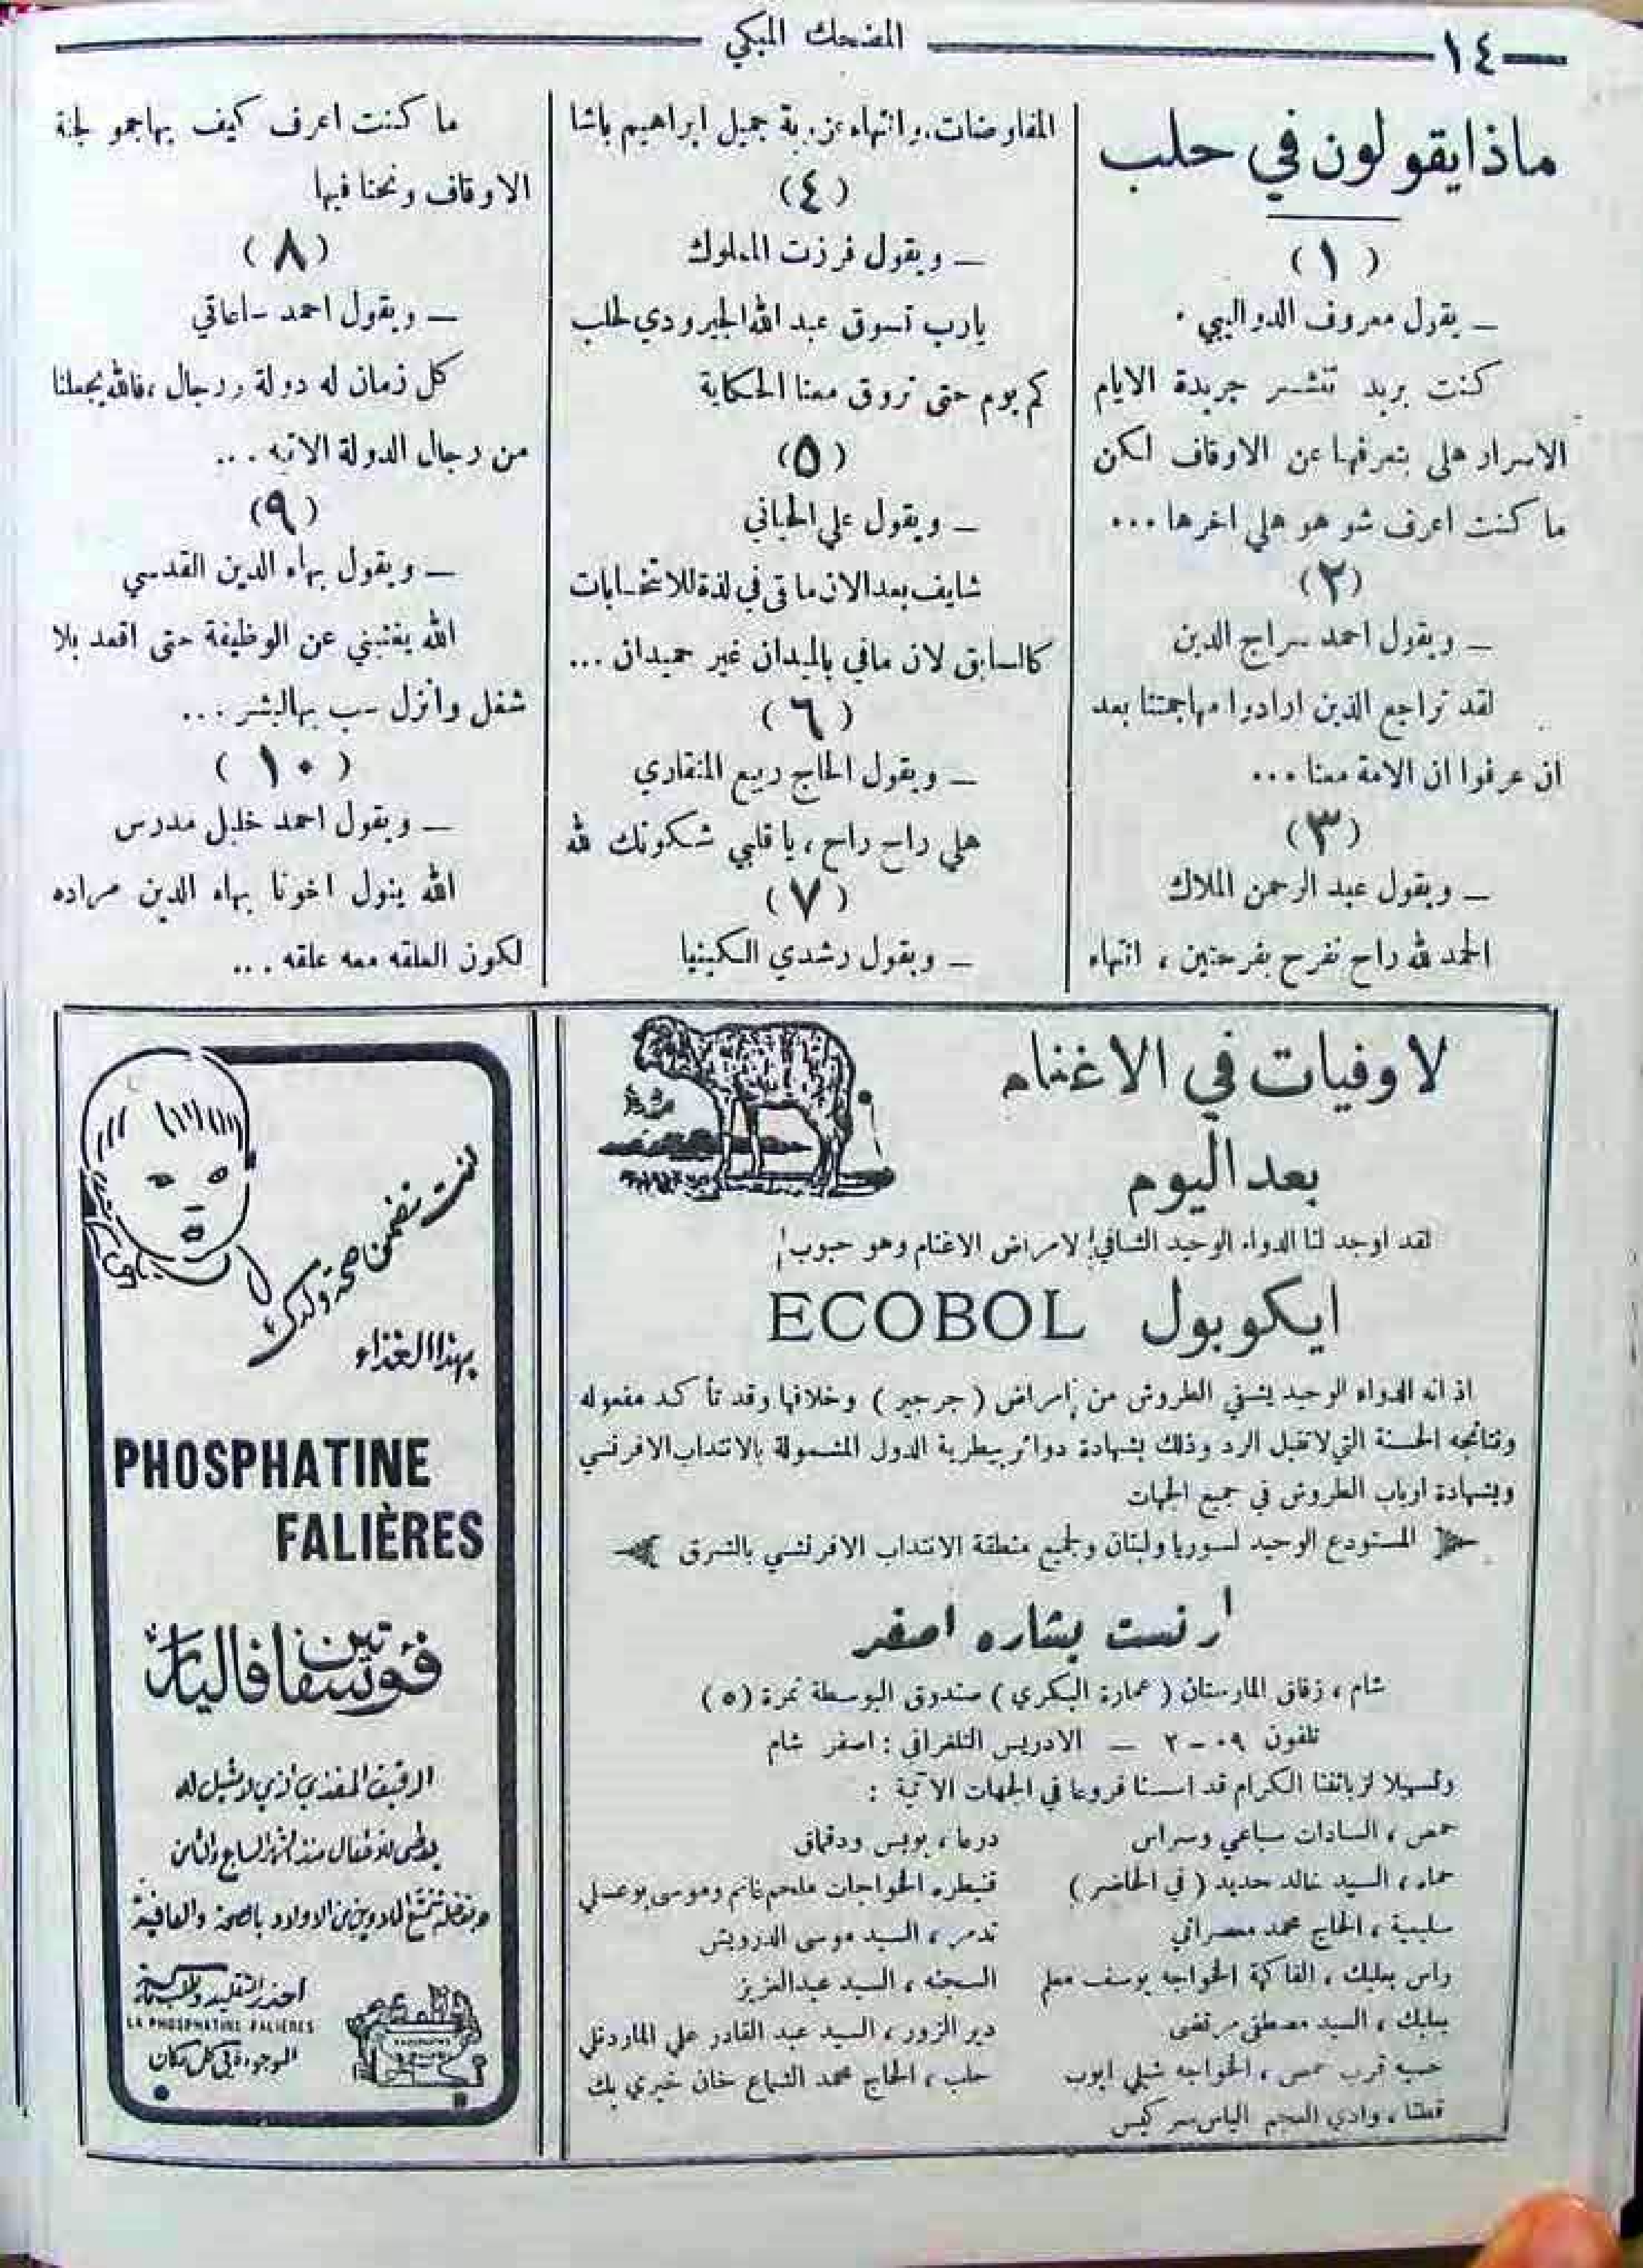 ١٤
المضحك المبكي
ماذا يقولون في حلب
(١)
— يقول معروف الدواليبي .
كنت بريد تنشر جريدة الايام
الاسرار هلي بتعرفها عن الاوقاف لكن
ما كنت اعرف شو هو هلي اخرها ...
(٢)
— ويقول احمد سراج الدين
لقد تراجع الذين ارادوا مهاجمتنا بعد
ان عرفوا ان الامة معنا ...
(٣)
— ويقول عبد الرحمن الملاك
الحمد لله راح نفرح بفرحتين ، انتهاء
المفاوضات، وانتهاء عزوبة جميل ابراهيم باشا
(٤)
— ويقول فرزت المملوك
يارب تسوق عبد الله الجيرودي لحلب
كم يوم حتى تروق معنا الحكاية
(٥)
— ويقول علي الحياني
شايف بعد الان ما قى في لذة للانتخابات
كالسابق لان مافي بالميدان غير حميدان ...
(٦)
— ويقول الحاج ربيع المنقاري
هلي راح راح ، يا قلبي شكوتك لله
(٧)
— ويقول رشدي الكيخيا
ما كنت اعرف كيف يهاجمو لجنة
الاوقاف ونحنا فيها
(٨)
— ويقول احمد ساعاتي
كل زمان له دولة ورجال ، فالله يجعلنا
من رجال الدولة الاتيه ...
(٩)
— ويقول بهاء الدين القدسي
الله يغنيني عن الوظيفة حتى اقعد بلا
شغل وانزل سب بهالبشر ...
(١٠)
— ويقول احمد خليل مدرس
الله ينول اخونا بهاء الدين مراده
لكون العلقه معه علقه ...
لا وفيات في الاغنام
بعد اليوم
لقد اوجد لنا الدواء الوحيد الشافي لامراض الاغنام وهو حبوب
ايكوبول ECOBOL
اذ انه الدواء الوحيد يشفي الطروش من امراض ( جرجير ) وخلافها وقد تأكد مفعوله
ونتائجه الحسنة التي لا تقبل الرد وذلك بشهادة دوائر بيطرية الدول المشمولة بالانتداب الافرنسي
وبشهادة ارباب الطروش في جميع الجهات
المستودع الوحيد لسوريا ولبنان ولجميع منطقة الانتداب الافرنسي بالشرق
ارنست بشاره اصفر
شام ، زقاق المارستان ( عمارة البكري ) صندوق البوسطة نمرة (٥)
تلفون ٠٩-٢ — الادريس التلغرافي : اصفر شام
وتسهيلا لزبائننا الكرام قد اسسنا فروعا في الجهات الآتية :
حمص ، السادات سباعي وسراس
حماه ، السيد خالد حديد ( في الحاضر )
سليمية ، الحاج محمد مصراتي
راس بعلبك ، الفاكهة الخواجه يوسف معلم
بعلبك ، السيد مصطفى مرتضى
حسيه قرب حمص ، الخواجه شبلي ايوب
قطنا ، وادي العجم الياس سركيس
درعا ، بويس ودقماق
قنيطره الخواجات ملحم غانم وموسى بوعسلي
تدمر ، السيد موسى الدرويش
السخنه ، السيد عبد العزيز
دير الزور ، السيد عبد القادر علي الماردللي
حلب ، الحاج محمد الشماع خان خيري بك
انت تضمن صحة ولدك
بهذا الغذاء
PHOSPHATINE
FALIÈRES
فوسفاتين فاليار
الدقيق المغذي الذي لا مثيل له
يعطى للاطفال منذ الشهر السابع والثامن
احذر التقليد
LA PHOSPHATINE FALIERES
الموجودة في كل مكان